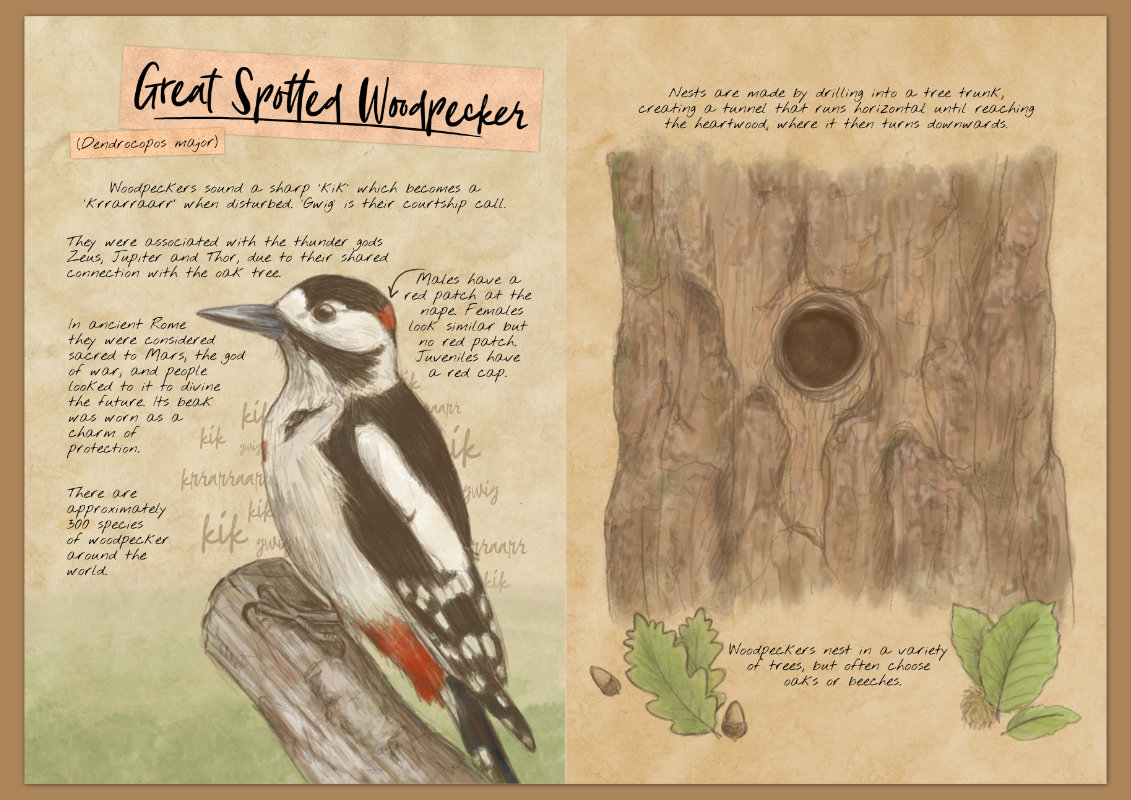 Great Spotted Woodpecker
(Dendrocopos major)
Woodpeckers sound a sharp 'kik' which becomes a
'krrarraarr' when disturbed. 'Gwig' is their courtship call.
They were associated with the thunder gods
Zeus, Jupiter and Thor, due to their shared
connection with the oak tree.
Males have a
red patch at the
nape. Females
look similar but
no red patch.
Juveniles have
a red cap.
In ancient Rome
they were considered
sacred to Mars, the god
of war, and people
looked to it to divine
the future. Its beak
was worn as a
charm of
protection.
There are
approximately
300 species
of woodpecker
around the
world.
kik
kik
kik
gwig
krrarraarr
kik
kik
kik
gwig
kik
Nests are made by drilling into a tree trunk,
creating a tunnel that runs horizontal until reaching
the heartwood, where it then turns downwards.
Woodpeckers nest in a variety
of trees, but often choose
oaks or beeches.